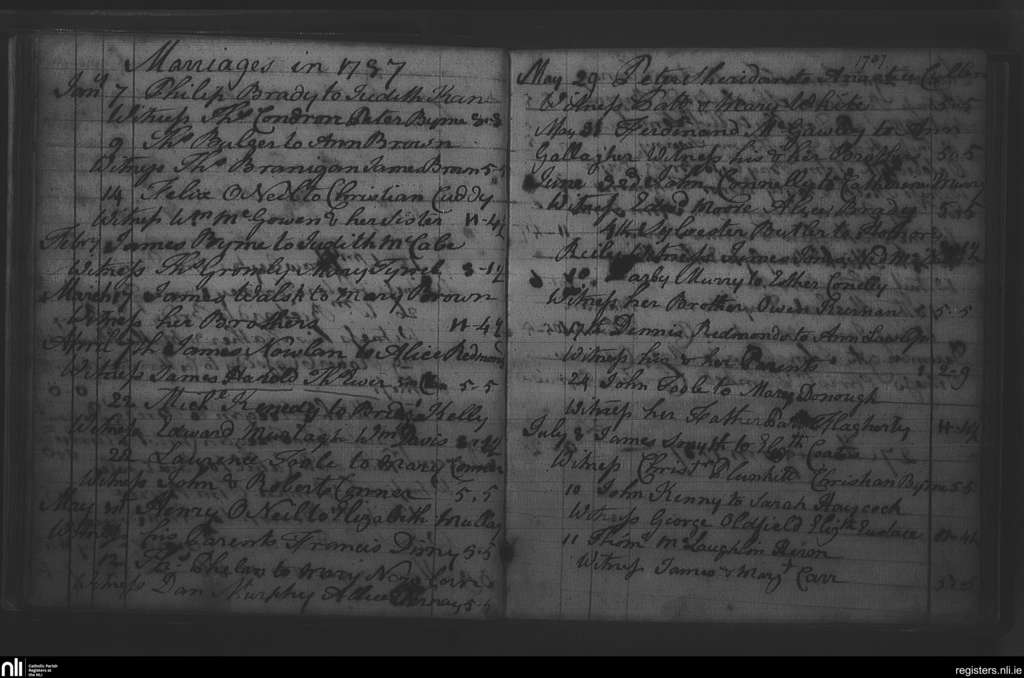 Marriages in 1787
Jany 7 Philip Brady to Judith Kean
Witness Thos Condron Peter Byrne
9 Thos Bulger to Ann Brown
Witness Thos Branigan James Brown 5-5
14 Felix O Neil to Christian Cuddy
Witness Wm McGowen & her Sister 11-4½
Febry James Byrne to Judith McCabe
Witness Thos Gromly Mary Tyrrel
March 17 James Walsh to Mary Brown
Witness her Brothers 11-4½
April 7th James Nowlan to Alice Redmond
Witness James Harold Thos 5-5
22 Michl Kenedy to Bridgt Kelly
Witness Edward Murtagh Wm Davis
22 Laurence Toole to Mary Conner
Witness John & Robert Conner 5.5
May Henry O Neil to Elizabeth Mullay
Witness his Parents Francis Dinny 5-5
12 Thos Phelan to Mary
Witness Dan Murphy Allice
1787
May 29 Peter Sheridan to Cullen
Witness Patt & Mary White 5-5
May 31 Ferdinand McGawley to Ann
Gallagher Witness his & her Brothers 5-5
June 3d John Connelly to Catherine Murry
Witness Edwd Moore Alice Brady 5-5
4th Sylvester Butler to Honor
Reily Witness James
10 Darby Murry to Esther Conelly
Witness her Brother, Owen Kiernan 5-5
17th Dennis Redmond to Ann Lawler
Witness his & her Parents 2-9
24 John Toole to Mary Donough
Witness her Father Flagherty
July 8 James Smyth to Elizth Coates
Witness Christr Plunkitt Christian Byrne 5-5
10 John Kenny to Sarah Haycock
Witness George Oldfield Elizth Eustace 11-4½
11 Thoms McLaughlin
Witness James & Mary Carr
nli
Catholic Parish
Registers at
the NLI
registers.nli.ie